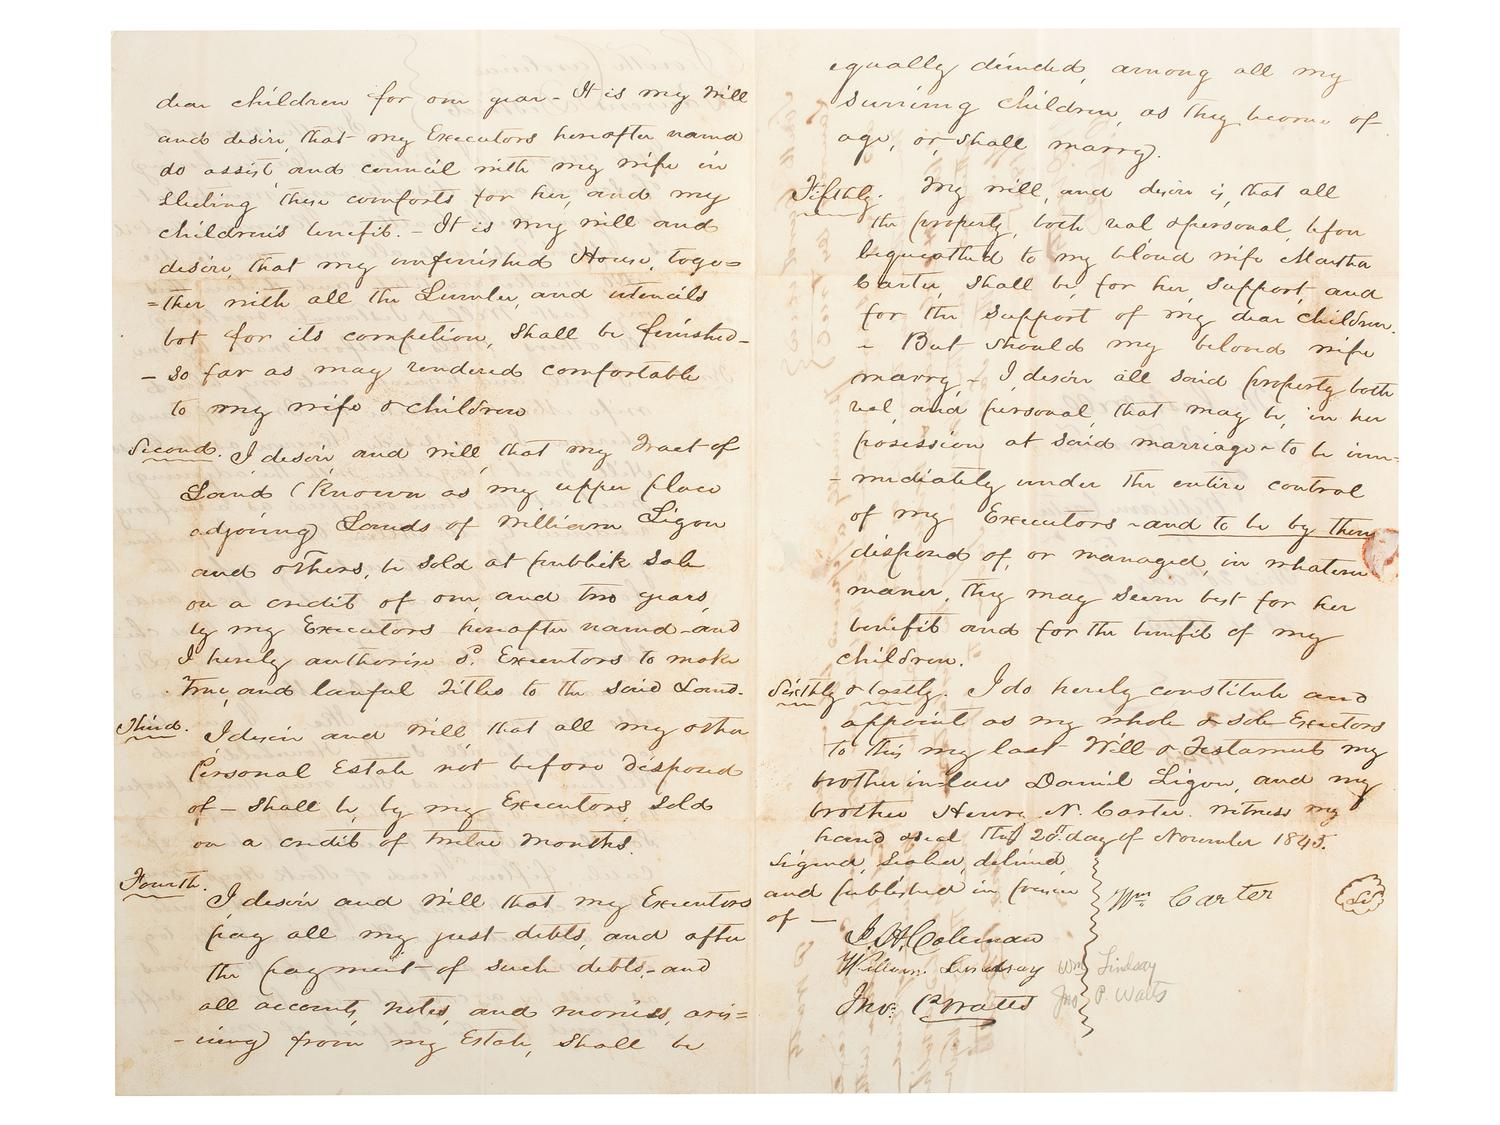 dear children for one year - It is my Will
and desire, that my Executors hereafter named
do assist and council with my wife in
these comforts for her, and my
children's benefit. - It is my will and
desire, that my unfinished House, toge=
=ther with all the Lumber, and utencils
bot for its competion, shall be finished-
- so far as may rendered comfortable
to my wife & children
Second. I desire and will, that my Tract of
Land (Known as my upper place
adjoing) Lands of William Ligon
and others, be sold at publick sale
on a credit of one, and two years,
by my Executors hereafter named - and
I herely authorise sd. Executors to make
True, and lawful Titles to the said Land.
Third. I desire and Will, that all my other
Personal Estate not before disposed
of - shall be, by my Executors, sold
on a credit of twelve months.
Fourth. I desire and Will that my Executors
pay all my just debts, and after
the payment of such debts, - and
all accounts, notes, and monies, aris=
- ieing) from my Estate, shall be
equally divided, among all my
surviving children, as they become of
age, or, shall marry.
Fifthly. My will, and desire is, that all
the property, both real & personal, before
bequeathed to my beloved wife Martha
Carter, shall be, for her, support, and
for the support of my dear children.
- But should my beloved wife
marry - I, desire all said property both
real and personal, that may be, in her
posession at said marriage - to be imm-
- mediately under the entire control
of my Executors - and to be by them
disposed of, or managed, in whatever
maner, they may seem best for her
benifit and for the benifit of my
children.
Sixthly & lastly. I do herely constitute and
appoint as my whole & sole Executors
to this my last Will & Testament my
brother in-law Daniel Ligon, and my
brother Henry N. Carter. Witness my
hand & seal this 20th. day of November 1845.
Signed, sealed, delivered,
and published in presence
of -
Wm. Carter
LS
J. H. Coleman
William Lindsay Wm Lindsay
Jno. P. Watts Jno P. Watts